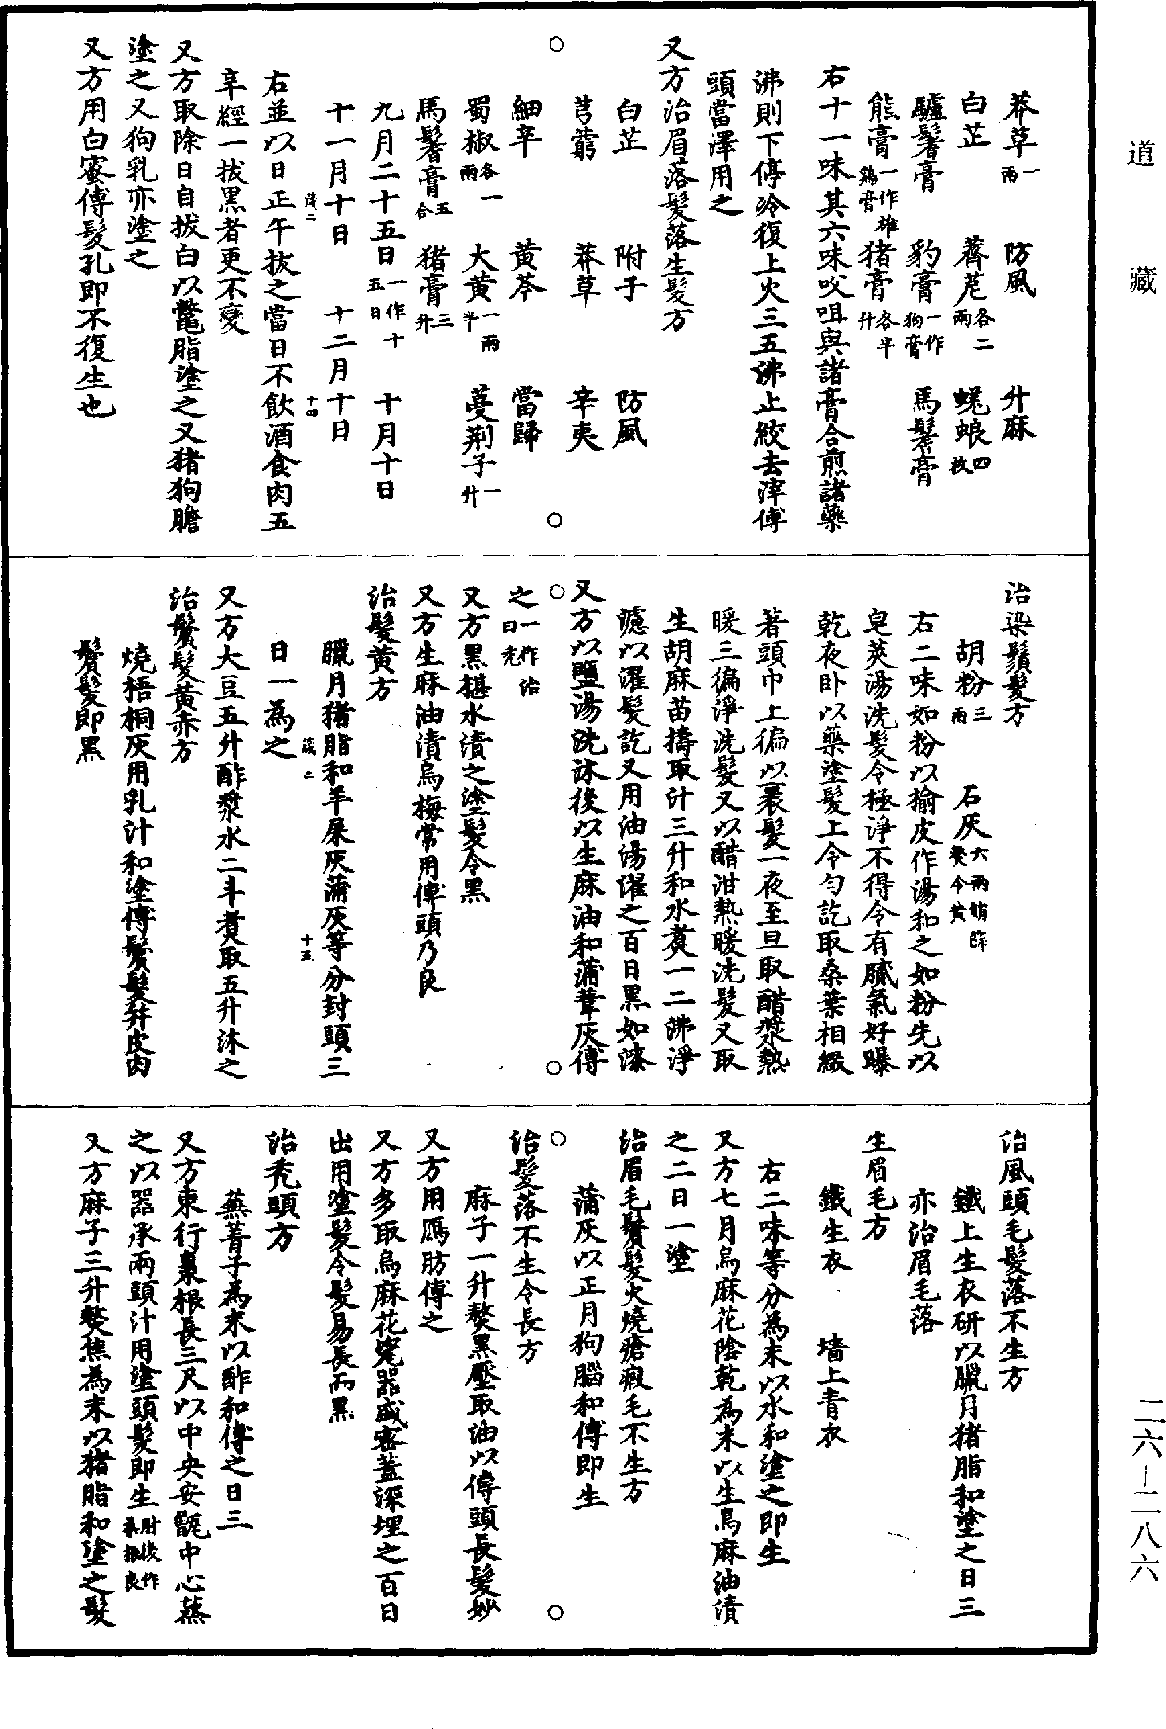 道藏
莽草一兩　防風　升麻
白芷　薺苨各二兩　蜣蜋四枚
驢鬐膏　豹膏一作狗膏　馬鬐膏
熊膏一作雄雞膏　猪膏各半升
右十一味其六味㕮咀與諸膏合煎諸藥
沸則下停冷復上火三五沸止絞去滓傅
頭當澤用之
又方治眉落髮落生髮方
白芷　附子　防風
芎藭　莽草　辛夷
細辛　黃芩　當歸
蜀椒各一兩　大黃一兩半　蔓荊子一升
馬鬐膏五合　猪膏三升
九月二十五日一作十五日　十月十日
十一月十日　十二月十日
右並以日正午拔之當日不飲酒食肉五
辛經一拔黑者更不變
又方取除日自拔白以鼈脂塗之又猪狗膽
塗之又狗乳亦塗之
又方用白蜜傅髮孔即不復生也
治染鬚髮方
胡粉三兩　石灰六兩
右二味如粉以榆皮作湯和之如粉先以
皂莢湯洗髮令極淨不得令有膩氣好曝
乾夜卧以藥塗髮上令勻訖取桑葉相綴
著頭巾上徧以裹髮一夜至旦取醋漿熱
暖三徧淨洗髮又以醋泔熱暖洗髮又取
生胡麻苗擣取汁三升和水煑一二沸淨
濾以濯髮訖又用油湯濯之百日黑如漆
又方以鹽湯洗沐後以生麻油和蒲葦灰傅
之一作治日光
又方黑椹水漬之塗髮令黑
又方生麻油漬烏梅常用傅頭乃良
治髮黃方
臘月猪脂和羊屎灰蒲灰等分封頭三
日一為之
又方大豆五升酢漿水二斗煑取五升沐之
治鬢髮黃赤方
燒梧桐灰用乳汁和塗傅鬢髮并皮肉
鬢髮即黑
治風頭毛髮落不生方
鐵上生衣研以臘月猪脂和塗之日三
亦治眉毛落
生眉毛方
鐵生衣　墻上青衣
右二味等分為末以水和塗之即生
又方七月烏麻花陰乾為末以生烏麻油漬
之二日一塗
治眉毛鬢髮火燒瘡瘢毛不生方
蒲灰以正月狗腦和傅即生
治髮落不生令長方
麻子一升熬黑壓取油以傅頭長髮妙
又方用鴈肪傅之
又方多取烏麻花瓷器盛密蓋深埋之百日
出用塗髮令髮易長而黑
治禿頭方
蕪菁子為末以酢和傅之日三
又方東行棗根長三尺以中央安甑中心蒸
之以器承兩頭汁用塗頭髮即生肘後作桑根良
又方麻子三升熬焦為末以猪脂和塗之髮
二六—二八六